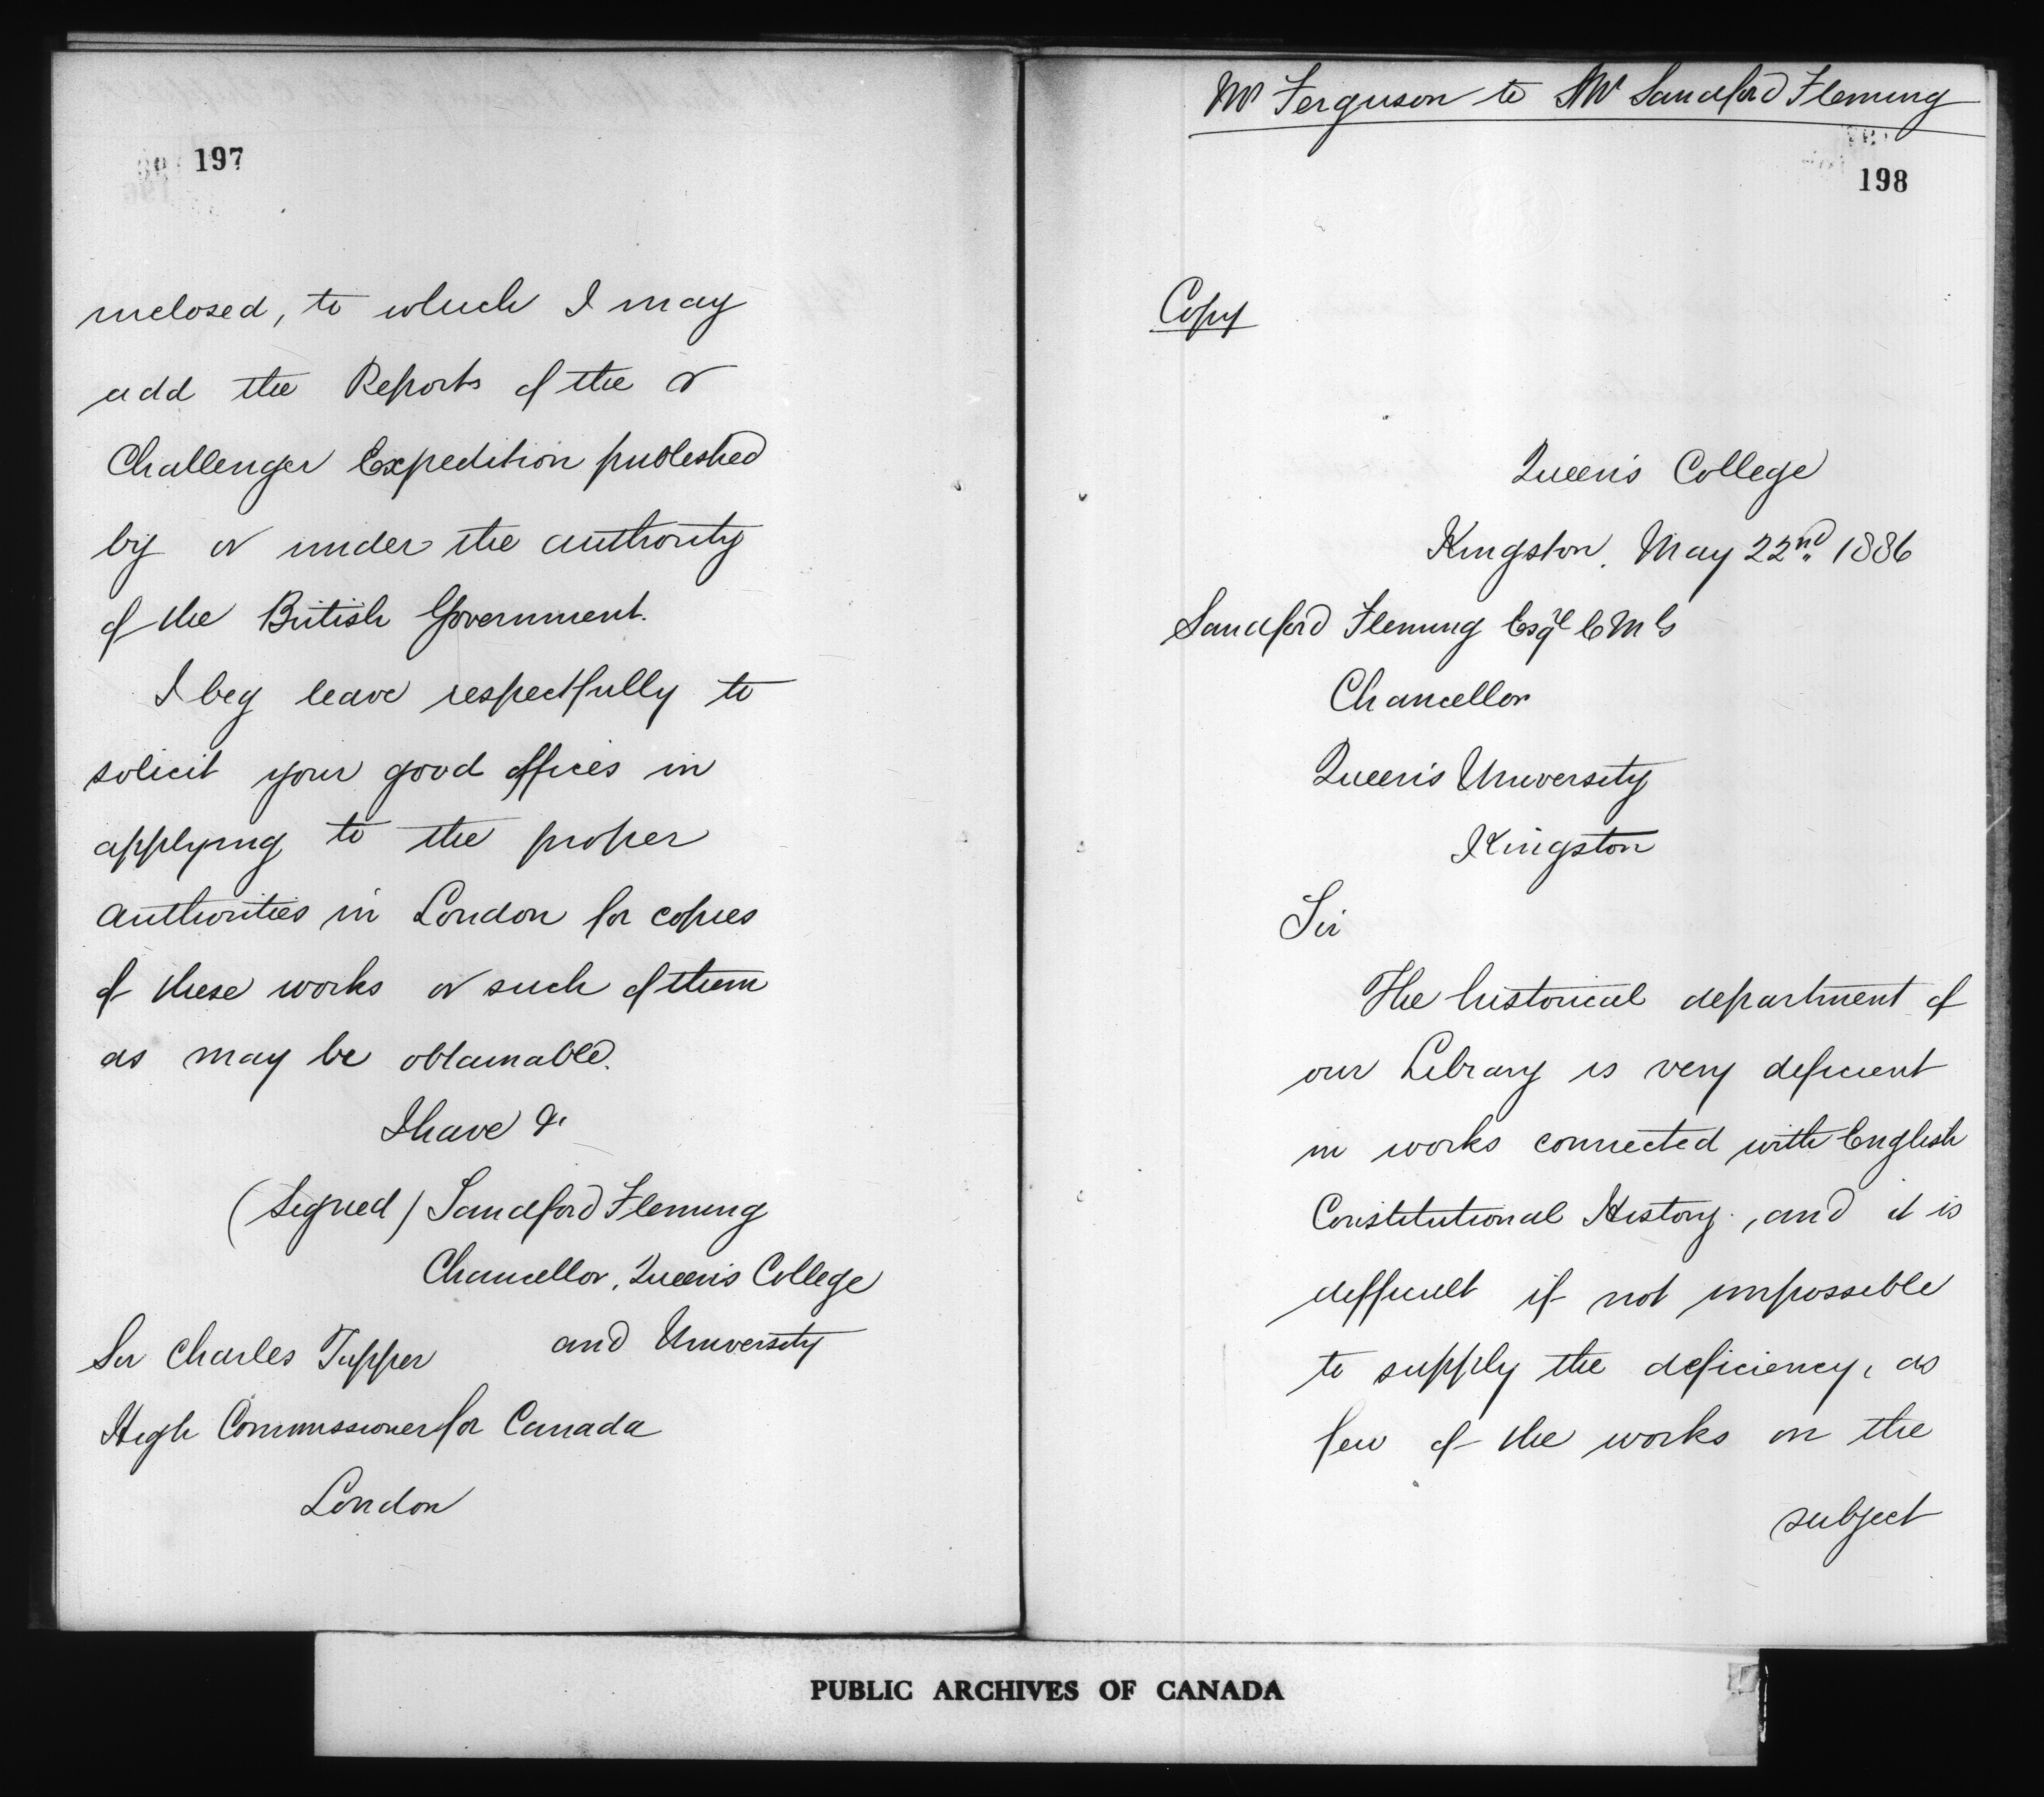 197
inclosed, to which I may
add the Reports of the
Challenger Expedition published
by or under the authority
of the British Government.
I beg leave respectfully to
solicit your good offices in
applying to the proper
authorities in London for copies
of these works or such of them
as may be obtainable.
I have &c
(signed) Sandford Fleming
Chancellor, Queen's College
and University
Sir Charles Tupper
High Commissioner for Canada
London
Mr Ferguson to Mr Sandford Fleming
198
Copy
Queen's College
Kingston. May 22nd 1886
Sandford Fleming Esqre C M G
Chancellor
Queen's University
Kingston
Sir
The historical department of
our Library is very deficient
in works connected with English
Constitutional History, and it is
difficult if not impossible
to supply the deficiency, as
few of the works on the
subject
PUBLIC ARCHIVES OF CANADA